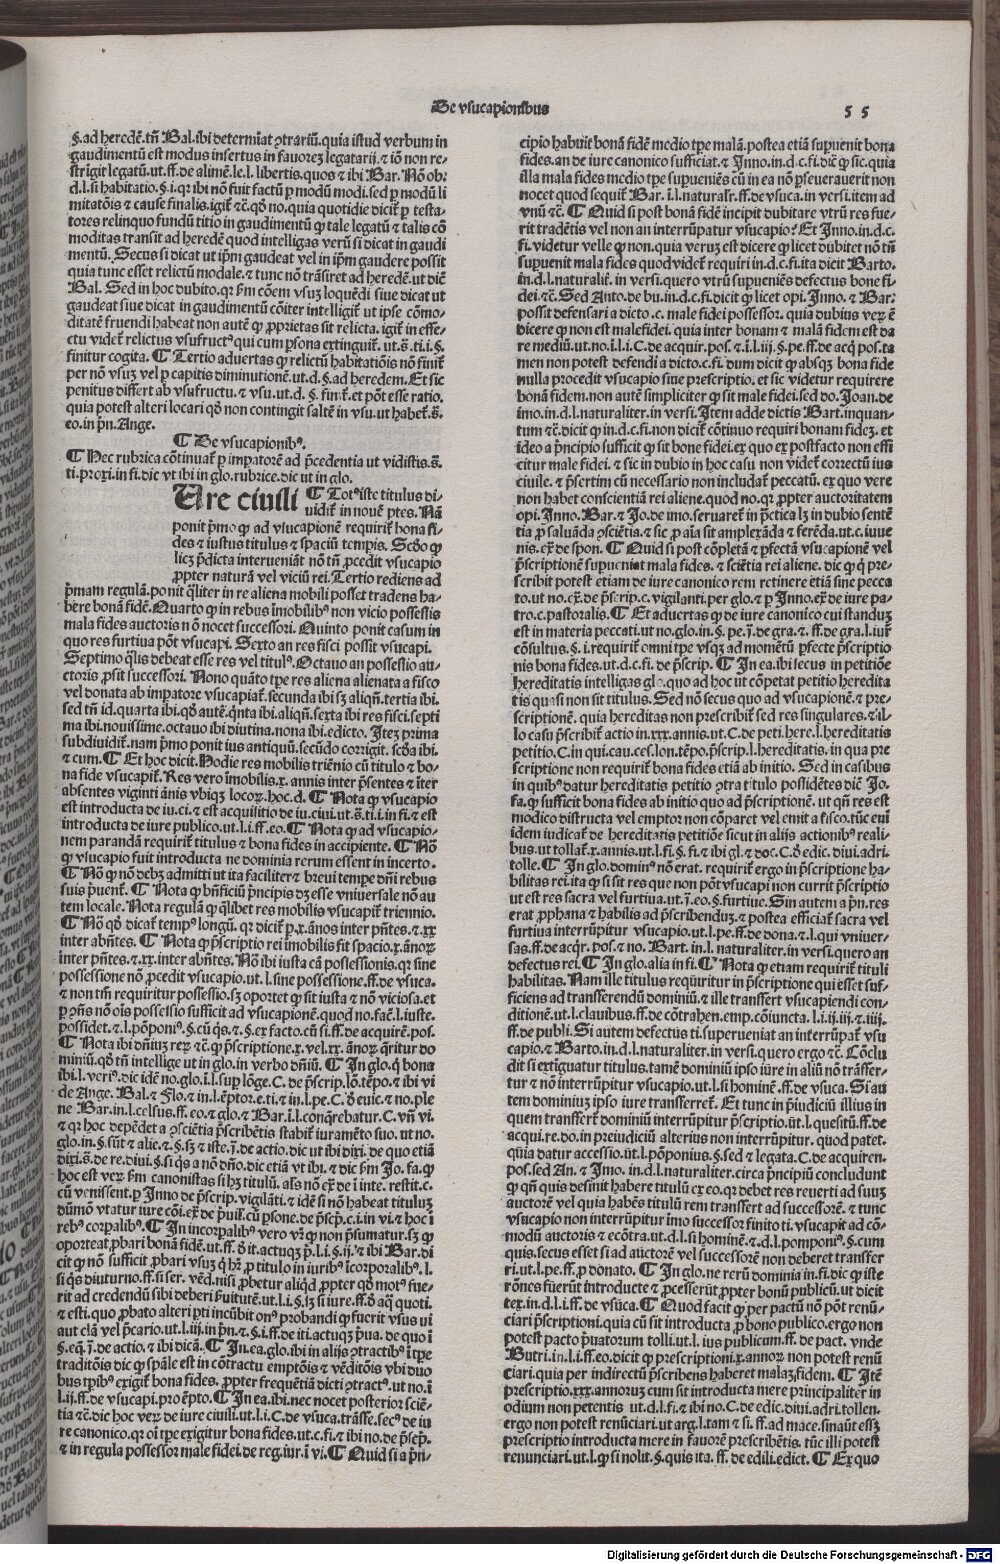 De vsucapionibus
5 5
§. ad heredẽ. tñ Bal. ibi determĩat ↄtrariũ. quia istud verbum in
gaudimentũ est modus insertus in fauorez legatarij. ⁊ iõ non re-
strigit legatũ. ut. ff. de alimẽ. le. l. libertis. quos ⁊ ibi Bar. Nõ ob
d. l. si habitatio. §. i. qr ibi nõ fuit factũ p modũ modi. sed p modũ li
mitatõis ⁊ cause finalis. igit ⁊c. qđ no. quia quotidie dicit p testa-
tores relinquo fundũ titio in gaudimentũ ꝙ tale legatũ ⁊ talis cõ
moditas transit ad heredẽ quod intelligas verũ si dicat in gaudi
mentũ. Secus si dicat ut ipm gaudeat vel in ipm gaudere possit
quia tunc esset relictũ modale. ⁊ tunc nõ trãsiret ad heredẽ. ut dic
Bal. Sed in hoc dubito. qr fm cõem vsuz loquẽdi siue dicat ut
gaudeat siue dicat in gaudimentũ cõiter intelligit ut ipse cõmo-
ditatẽ fruendi habeat non autẽ ꝙ pprietas sit relicta. igit in effe-
ctu videt relictus vsufructꝰ qui cum psona extinguit. ut. s. ti. i. §.
finitur cogita. ¶ Tertio aduertas ꝙ relictũ habitatiõis nõ finit
per nõ vsuz vel p capitis diminutionẽ. ut. d. §. ad heredem. Et sic
penitus differt ab vsufructu. ⁊ vsu. ut. d. §. fin. ⁊ et põt esse ratio.
quia potest alteri locari qđ non contingit saltẽ in vsu. ut habet. s.
eo. in pñ. Ange.
¶ De vsucapionibꝰ.
¶ Nec rubrica cõtinuat p imperatorẽ ad p̃cedentia ut vidistis. s.
ti. proxi. in fi. dic vt ibi in glo. rubrice. dic ut in glo.
Ure ciuili ¶ Totꝰ iste titulus di-
uidit in nouẽ ptes. Nã
ponit p̃mo ꝙ ad vsucapionẽ requirit bona fi-
des ⁊ iustus titulus ⁊ spaciũ tempis. Scđo ꝙ
licz p̃dicta interueniãt nõ tñ pcedit vsucapio
ppter naturã vel viciũ rei. Tertio rediens ad
p̃mam regulã. ponit q̃liter in re aliena mobili posset tradens ha-
bere bonã fidẽ. Quarto ꝙ in rebus imobilibꝰ non vicio possessis
mala fides auctoris nõ nocet successori. Quinto ponit casum in
quo res furtiua põt vsucapi. Sexto an res fisci possit vsucapi.
Septimo q̃lis debeat esse res vel titulꝰ. Octauo an possessio au-
ctoris psit successori. Nono quãto tpe res aliena alienata a fisco
vel donata ab imperatore vsucapiat. secunda ibi sz aliqñ. tertia ibi.
sed tñ id. quarta ibi. qđ autẽ. q̃nta ibi. aliqñ. sexta ibi res fisci. septi
ma ibi. nouissime. octauo ibi diutina. nona ibi. edicto. Itez prima
subdiuidit. nam p̃mo ponit ius antiquũ. secũdo corrigit. scđa ibi.
⁊ cum. ¶ Et hoc dicit. Hodie res mobilis triẽnio cũ titulo ⁊ bo-
na fide vsucapit. Res vero imobilis. x. annis inter p̃sentes ⁊ iter
absentes viginti ãnis vbiqz locoꝝ. hoc. d. ¶ Nota ꝙ vsucapio
est introducta de iu. ci. ⁊ est acquisitio de iu. ciui. ut. s. ti. i. in fi. ⁊ est
introducta de iure publico. ut. l. i. ff. eo. ¶ Nota ꝙ ad vsucapio-
nem parandã requirit titulus ⁊ bona fides in accipiente. ¶ Nõ
ꝙ vsucapio fuit introducta ne dominia rerum essent in incerto.
¶ Nõ ꝙ nõ debz admitti ut ita faciliter ⁊ breui tempe dñi rebus
suis p̃uent. ¶ Nota ꝙ bñficiũ p̃ncipis dz esse vniuersale nõ au
tem locale. Nota regulã ꝙ q̃libet res mobilis vsucapit triennio.
¶ Nõ qđ dicat tempꝰ longũ. qr dicit p. x. ãnos inter pñtes. ⁊. xx
inter abñtes. ¶ Nota ꝙ p̃scriptio rei imobilis fit spacio. x. ãnoꝝ
inter pñtes. ⁊. xx. inter abñtes. Nõ ibi iusta cã possessionis. qr sine
possessione nõ pcedit vsucapio. ut. l. sine possessione. ff. de vsuca.
⁊ non tm̃ requiritur possessio. sz oportet ꝙ sit iusta ⁊ nõ viciosa. et
p ↄñs nõ ois possessio sufficit ad vsucapionẽ. quod no. faẽ. l. iuste.
possidet. ⁊. l. põponꝰ. §. cũ q̃s. ⁊. §. ex facto. cũ si. ff. de acquirẽ. pos.
¶ Nota ibi dñiuz reꝝ ⁊c. ꝙ p̃scriptione. x. vel. xx. ãnoꝝ q̃ritur do
miniũ. qđ tñ intellige ut in glo. in verbo dñiũ. ¶ In glo. q̃ bona
ibi. l. veriꝰ. dic idẽ no. glo. i. l. sup lõge. C. de p̃scrip. lõ. tẽpo. ⁊ ibi vi
de Ange. Bal. ⁊ Flo. ⁊ in. l. ẽptor. e. ti. ⁊ in. l. pe. C. ð euic. ⁊ no. ple
ne Bar. in. l. celsus. ff. eo. ⁊ glo. ⁊ Bar. i. l. conq̃rebatur. C. vñ. vi-
⁊ qr hoc depẽdet a ↄsciẽtia p̃scribẽtis stabit iuramẽto suo. ut no.
glo. in. §. sũt ⁊ alie. ⁊. §. sz ⁊ iste. i. de actio. dic ut ibi dixi. de quo etiã
dixi. s. de re. diui. §. si q̃s a nõ dño. dic etiã vt ibi. ⁊ dic fm Jo. fa. ꝙ
hoc est veꝝ fm canonistas si hz titulũ. als nõ ex̃ de i inte. restit. c.
cũ venissent. p Inno de p̃scrip. vigilãti. ⁊ idẽ si nõ habeat tituluz
dũmõ vtatur iure cõi. ex̃ de p̃uil. cũ psone. de p̃scp̃. c. i. in vi. ⁊ hoc i
rebꝰ corpalibꝰ. ¶ In incorpalibꝰ vero vrꝫ ꝙ non p̃sumatur. sz ꝙ
oporteat pbari bonã fidẽ. ut. ff. ð it. actuqz p̃. l. i. §. ij. ⁊ ibi Bar. di
cit ꝙ nõ sufficit pbari vsuz q̃ hz p titulo in iuribꝰ incorporalibꝰ. l.
si q̃s diuturno. ff. si ser. vẽd. nisi pbetur aliqđ ppter qđ motꝰ fue-
rit ad credendũ sibi deberi fuitutẽ. ut. l. i. §. sz si iure. ff. ð aq̃ quoti.
⁊ esti. quo pbato alteri pti incũbit onꝰ probandi ꝙ fuerit vsus vi
aut clã vel p̃cario. ut. l. iij. in pñ. ⁊. §. i. ff. de iti. actuqz pua. de quo i
§. eq̃. i. de actio. ⁊ ibi dicã. ¶ In. ea. glo. ibi in alijs ↄtractibꝰ i tpe
traditõis dic ꝙ spãle est in cõtractu emptõis ⁊ vẽditõis vbi duo
bus tpibꝰ exigit bona fides. ppter frequẽtiã dicti ↄtractꝰ. ut no. i
l. ij. ff. de vsucapi. pro ẽpto. ¶ In ea. ibi. nec nocet posterior sciẽ-
tia ⁊c. dic hoc veꝝ de iure ciuili. ut. l. i. C. de vsuca. trãsfe. secꝰ de iu
re canonico. qr oi tpe exigitur bona fides. ut. c. fi. ⁊ ibi no. de p̃scp̃.
⁊ in regula possessor male fidei. de reg. iur. i vi. ¶ Quid si a p̃n-
cipio habuit bonã fidẽ medio tpe malã. postea etiã supuenit bona
fides. an de iure canonico sufficiat. ⁊ Inno. in. d. c. fi. dicit ꝙ sic. quia
illa mala fides medio tpe supueniẽs cũ in ea nõ pseverauerit non
nocet quod sequit Bar. i. l. naturalr. ff. de vsuca. in versi. item ad
vnũ ⁊c. ¶ Quid si post bonã fidẽ incipit dubitare vtrũ res fue-
rit tradẽtis vel non an interrũpatur vsucapio? Et Inno. in. d. c.
fi. videtur velle ꝙ non. quia veruz est dicere ꝙ licet dubitet nõ tñ
supuenit mala fides quod videt requiri in. d. c. fi. ita dicit Barto.
in. d. l. naturalit. in versi. quero vtrũ supueniẽs defectus bone fi-
dei. ⁊c. Sed Anto. de bu. in. d. c. fi. dicit ꝙ licet opi. Inno. ⁊ Bar.
possit defensari a dicto. c. male fidei possessor. quia dubius veꝝ ẽ
dicere ꝙ non est malefidei. quia inter bonam ⁊ malã fidem est da
re mediũ. ut. no. i. l. i. C. de acquir. pos. ⁊ i. l. iij. §. pe. ff. de acq̃. pos. ta
men non potest defendi a dicto. c. fi. dum dicit ꝙ absqz bona fide
nulla procedit vsucapio siue prescriptio. et sic videtur requirere
bonã fidem. non autẽ simpliciter ꝙ sit male fidei. sed do. Joan. de
imo. in. d. l. naturaliter. in versi. Item adde dictis Bart. inquan-
tum ⁊c. dicit ꝙ in. d. c. fi. non dicit continuo requiri bonam fidez. et
ideo a p̃ncipio sufficit ꝙ sit bone fidei. ex quo ex postfacto non effi
citur male fidei. ⁊ sic in dubio in hoc casu non videt correctũ ius
ciuile. ⁊ p̃sertim cũ necessario non includat peccatũ. ex quo vere
non habet conscientiã rei aliene. quod no. qr ppter auctoritatem
opi. Inno. Bar. ⁊ Jo. de imo. seruaret in p̃ctica lz in dubio sentẽ
tia p saluãda ↄsciẽtia. ⁊ sic p aia sit amplexãda ⁊ ferẽda. ut. c. iuue
nis. ex̃ de spon. ¶ Quid si post cõpletã ⁊ pfectã vsucapionẽ vel
p̃scriptionẽ supueniat mala fides. ⁊ sciẽtia rei aliene. dic ꝙ q̃ pre-
scribit potest etiam de iure canonico rem retinere etiã sine pecca
to. ut no. ex̃. de p̃scrip. c. vigilanti. per glo. ⁊ p Inno. ex̃. de iure pa-
tro. c. pastoralis. ¶ Et aduertas ꝙ de iure canonico cui standuz
est in materia peccati. ut no. glo. in. §. pe. i. de gra. ⁊. ff. de gra. l. iur
cõsultus. §. i. requirit omni tpe vsqz ad momẽtũ pfecte p̃scriptio
nis bona fides. ut. d. c. fi. de p̃scrip. ¶ In ea. ibi secus in petitiõe
hereditatis intelligas glo. quo ad hoc ut cõpetat petitio heredita
tis quasi non sit titulus. Sed nõ secus quo ad vsucapionẽ ⁊ pre-
scriptionẽ. quia hereditas non prescribit sed res singulares. ⁊ il-
lo casu p̃scribit actio in. xxx. annis. ut C. de peti. here. l. hereditatis
petitio. C. in qui. cau. ces. lon. tẽpo. p̃scrip. l. hereditatis. in qua pre
scriptione non requirit bona fides etiã ab initio. Sed in casibus
in quibꝰ datur hereditatis petitio ↄtra titulo possidẽtes dicit Jo.
fa. ꝙ sufficit bona fides ab initio quo ad p̃scriptionẽ. ut qñ res est
modico distructa vel emptor non cõparet vel emit a fisco. tũc eni
idem iudicat de hereditatis petitiõe sicut in alijs actionibꝰ reali-
bus. ut tollat. x. annis. ut. l. fi. §. fi. ⁊ ibi gl. ⁊ doc. C. ð edic. diui. adri.
tolle. ¶ In glo. dominꝰ nõ erat. requirit ergo in p̃scriptione ha-
bilitas rei. ita ꝙ si sit res que non põt vsucapi non currit p̃scriptio
ut est res sacra vel furtiua. ut. i. eo. §. furtiue. Sin autem a pñ. res
erat pphana ⁊ habilis ad p̃scribenduz. ⁊ postea efficiat sacra vel
furtiua interrũpitur vsucapio. ut. l. pe. ff. de dona. ⁊. l. qui vniuer-
sas. ff. de acq̃r. pos. ⁊ no. Bart. in. l. naturaliter. in versi. quero an
defectus rei. ¶ In glo. alia in fi. ¶ Nota ꝙ etiam requirit tituli
habilitas. Nam ille titulus requiritur in p̃scriptione qui esset suf-
ficiens ad transferendũ dominiũ. ⁊ ille transfert vsucapiendi con-
ditionẽ. ut. l. clauibus. ff. de cõtrahen. emp. cõiuncta. l. i. ij. iij. ⁊. iiij.
ff. de publi. Si autem defectus ti. superueniat an interrũpat vsu
capio. ⁊ Barto. in. d. l. naturaliter. in versi. quero ergo ⁊c. Cõclu
dit si extiguatur titulus. tamẽ dominiũ ipso iure in aliũ nõ trãsfer-
tur ⁊ nõ interrũpitur vsucapio. ut. l. si hominẽ. ff. de vsuca. Si au
tem dominiuz ipso iure transferret. Et tunc in p̃iudiciũ illius in
quem transfert dominiũ interrũpitur p̃scriptio. ut. l. quesitũ. ff. de
acqui. re. do. in preiudiciũ alterius non interrũpitur. quod patet.
quia datur accessio. ut. l. põponius. §. sed ⁊ legata. C. de acquiren.
pos. sed An. ⁊ Imo. in. d. l. naturaliter. circa p̃ncipiũ concludunt
ꝙ qñ quis desinit habere titulũ ex eo. qr debet res reuerti ad suuz
auctorẽ vel quia habẽs titulũ rem transfert ad successorẽ. ⁊ tunc
vsucapio non interrũpitur imo successor finito ti. vsucapit ad cõ-
modũ auctoris ⁊ ecõtra. ut. d. l. si hominẽ. ⁊. d. l. pomponiꝰ. §. cum
quis. secus esset si ad auctorẽ vel successorẽ non deberet transfer
ri. ut. l. pe. ff. p donato. ¶ In glo. ne rerũ dominia in fi. dic ꝙ iste
rõnes fuerũt introducte ⁊ pcesserũt ppter bonũ publicũ. ut dicit
tex. in. d. l. i. ff. de vsuca. ¶ Quod facit ꝙ per pactũ nõ põt renũ-
ciari p̃scriptioni. quia cũ sit introducta p bono publico. ergo non
potest pacto p̃uatorum tolli. ut. l. ius publicum. ff. de pact. vnde
Butri. in. l. i. ff. eo. dicit ꝙ prescriptioni. x. annoꝝ non potest renũ
ciari. quia per indirectũ p̃scribens haberet malaz fidem. ¶ Itẽ
prescriptio. xxx. annoruz cum sit introducta mere principaliter in
odium non petentis ut. d. l. fi. ⁊ ibi no. C. de edic. diui. adri. tollen.
ergo non potest renũciari. ut arg. l. tam ⁊ si. ff. ad mace. sinaut essz
prescriptio introducta mere in fauorẽ prescribẽtis. tũc illi potest
renunciari. ut. l. ꝙ si nolit. §. quis ita. ff. de edili. edict. ¶ Ex quo
Digitalisierung gefördert durch die Deutsche Forschungsgemeinschaft - DFG